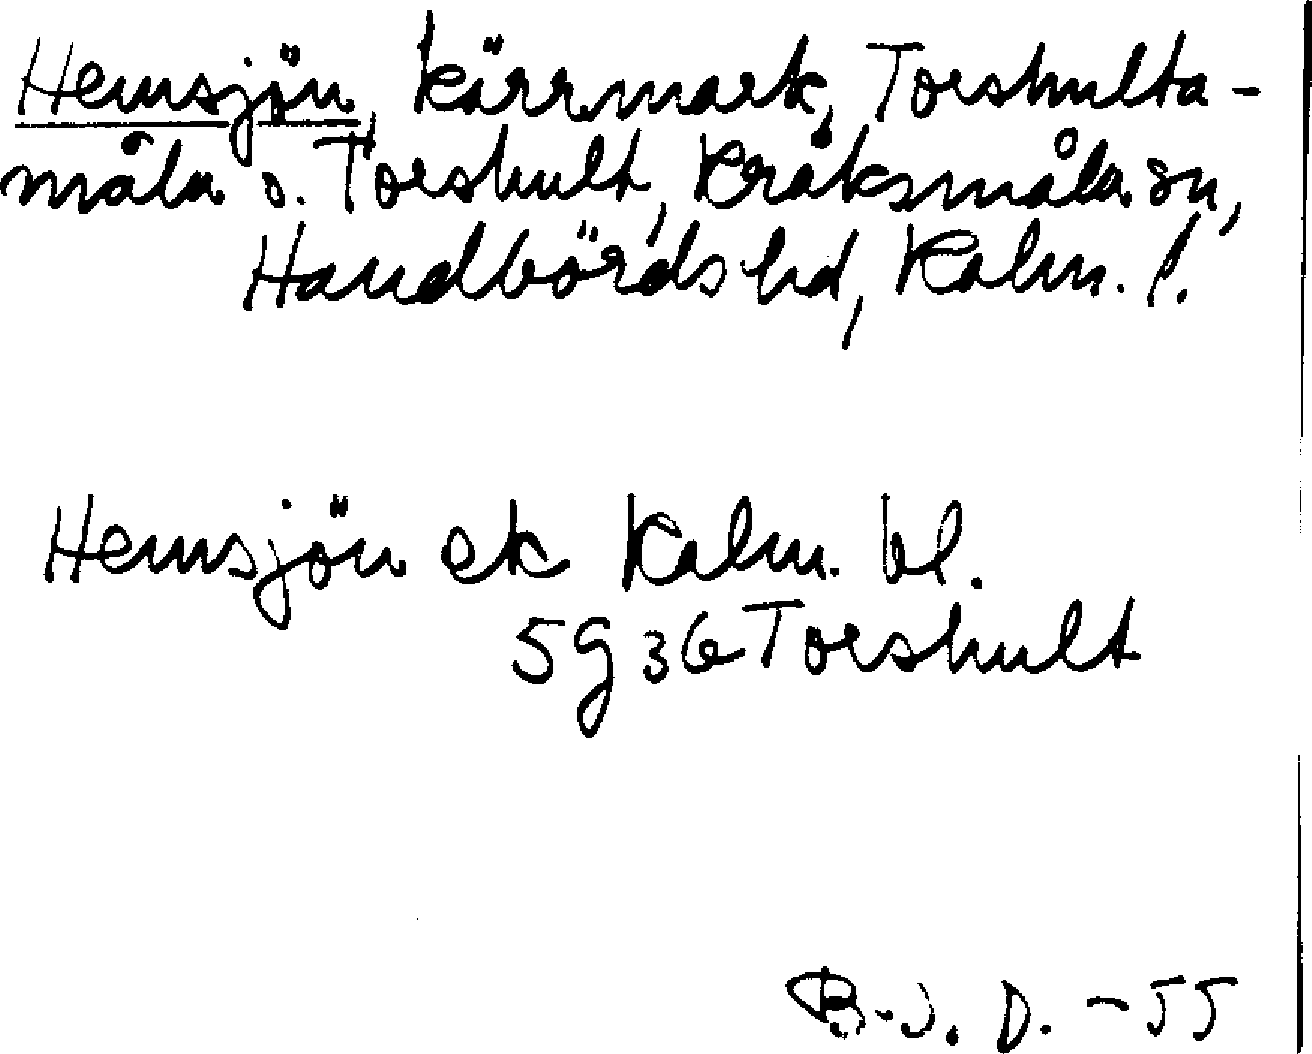 Hemsjön, kärrmark, Torshulta-
måla o. Torshult, Kråksmåla sn,
Handbörds hd, Kalm. l.
Hemsjön ek Kalm. bl.
5g36 Torshult
B.-J. D. -55